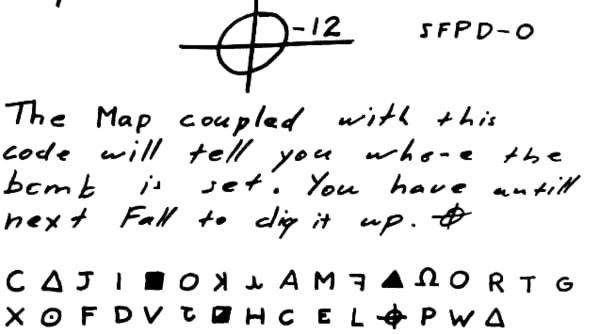 ⌖-12 SFPD-0
The Map coupled with this
code will tell you where the
bomb is set. You have untill
next Fall to dig it up. ⌖
C Δ J I ■ O ʞ ⅄ A M ꟻ ▲ Ω O R T G
X ⊙ F D V Ƭ ◪ H C E L ⌖ P W Δ